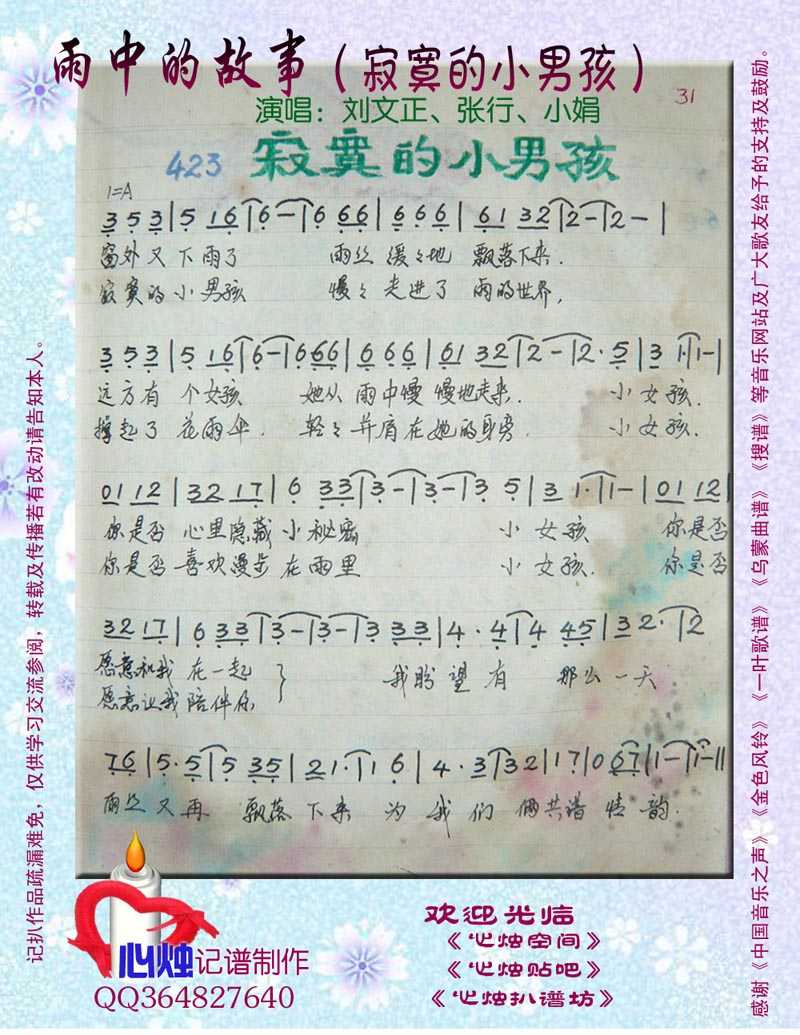 雨中的故事（寂寞的小男孩）
演唱：刘文正、张行、小娟
31
423 寂寞的小男孩
1=A
3 5 3 | 5 16 | 6 - | 6 66 | 6 6 6 | 61 32 | 2 - | 2 - |
窗外又下雨了 雨丝缓々地 飘落下来.
寂寞的小男孩 慢々走进了 雨的世界,
3 5 3 | 5 16 | 6 - | 6 66 | 6 6 6 | 61 32 | 2 - | 2 · 5 | 3 1· | 1 - |
远方有 个女孩 她从 雨中慢 慢地走来. 小女孩.
撑起了 花雨伞. 轻々并肩在她的身旁. 小女孩.
01 12 | 32 17 | 6 33 | 3 - | 3 - | 3 5 | 3 1· | 1 - | 01 12 |
你是否 心里隐藏 小秘密 小女孩 你是否
你是否 喜欢漫步 在雨里 小女孩. 你是否
32 17 | 6 33 | 3 - | 3 - | 3 33 | 4 · 4 | 4 45 | 32· | 2
愿意和我 在一起
愿意让我 陪伴你
我盼望有 那么一天
76 | 5·5 | 5 35 | 21· | 1 6 | 4 · 3 | 32 | 17 | 0 67 | 1 - | 1 - ||
雨丝又再 飘落下来 为我们 俩共谱情韵.
记扒作品疏漏难免，仅供学习交流参阅，转载及传播若有改动请告知本人。
感谢《中国音乐之声》《金色风铃》《一叶歌谱》《乌蒙曲谱》《搜谱》等音乐网站及广大歌友给予的支持及鼓励。
心烛记谱制作
QQ364827640
欢迎光临
《心烛空间》
《心烛贴吧》
《心烛扒谱坊》